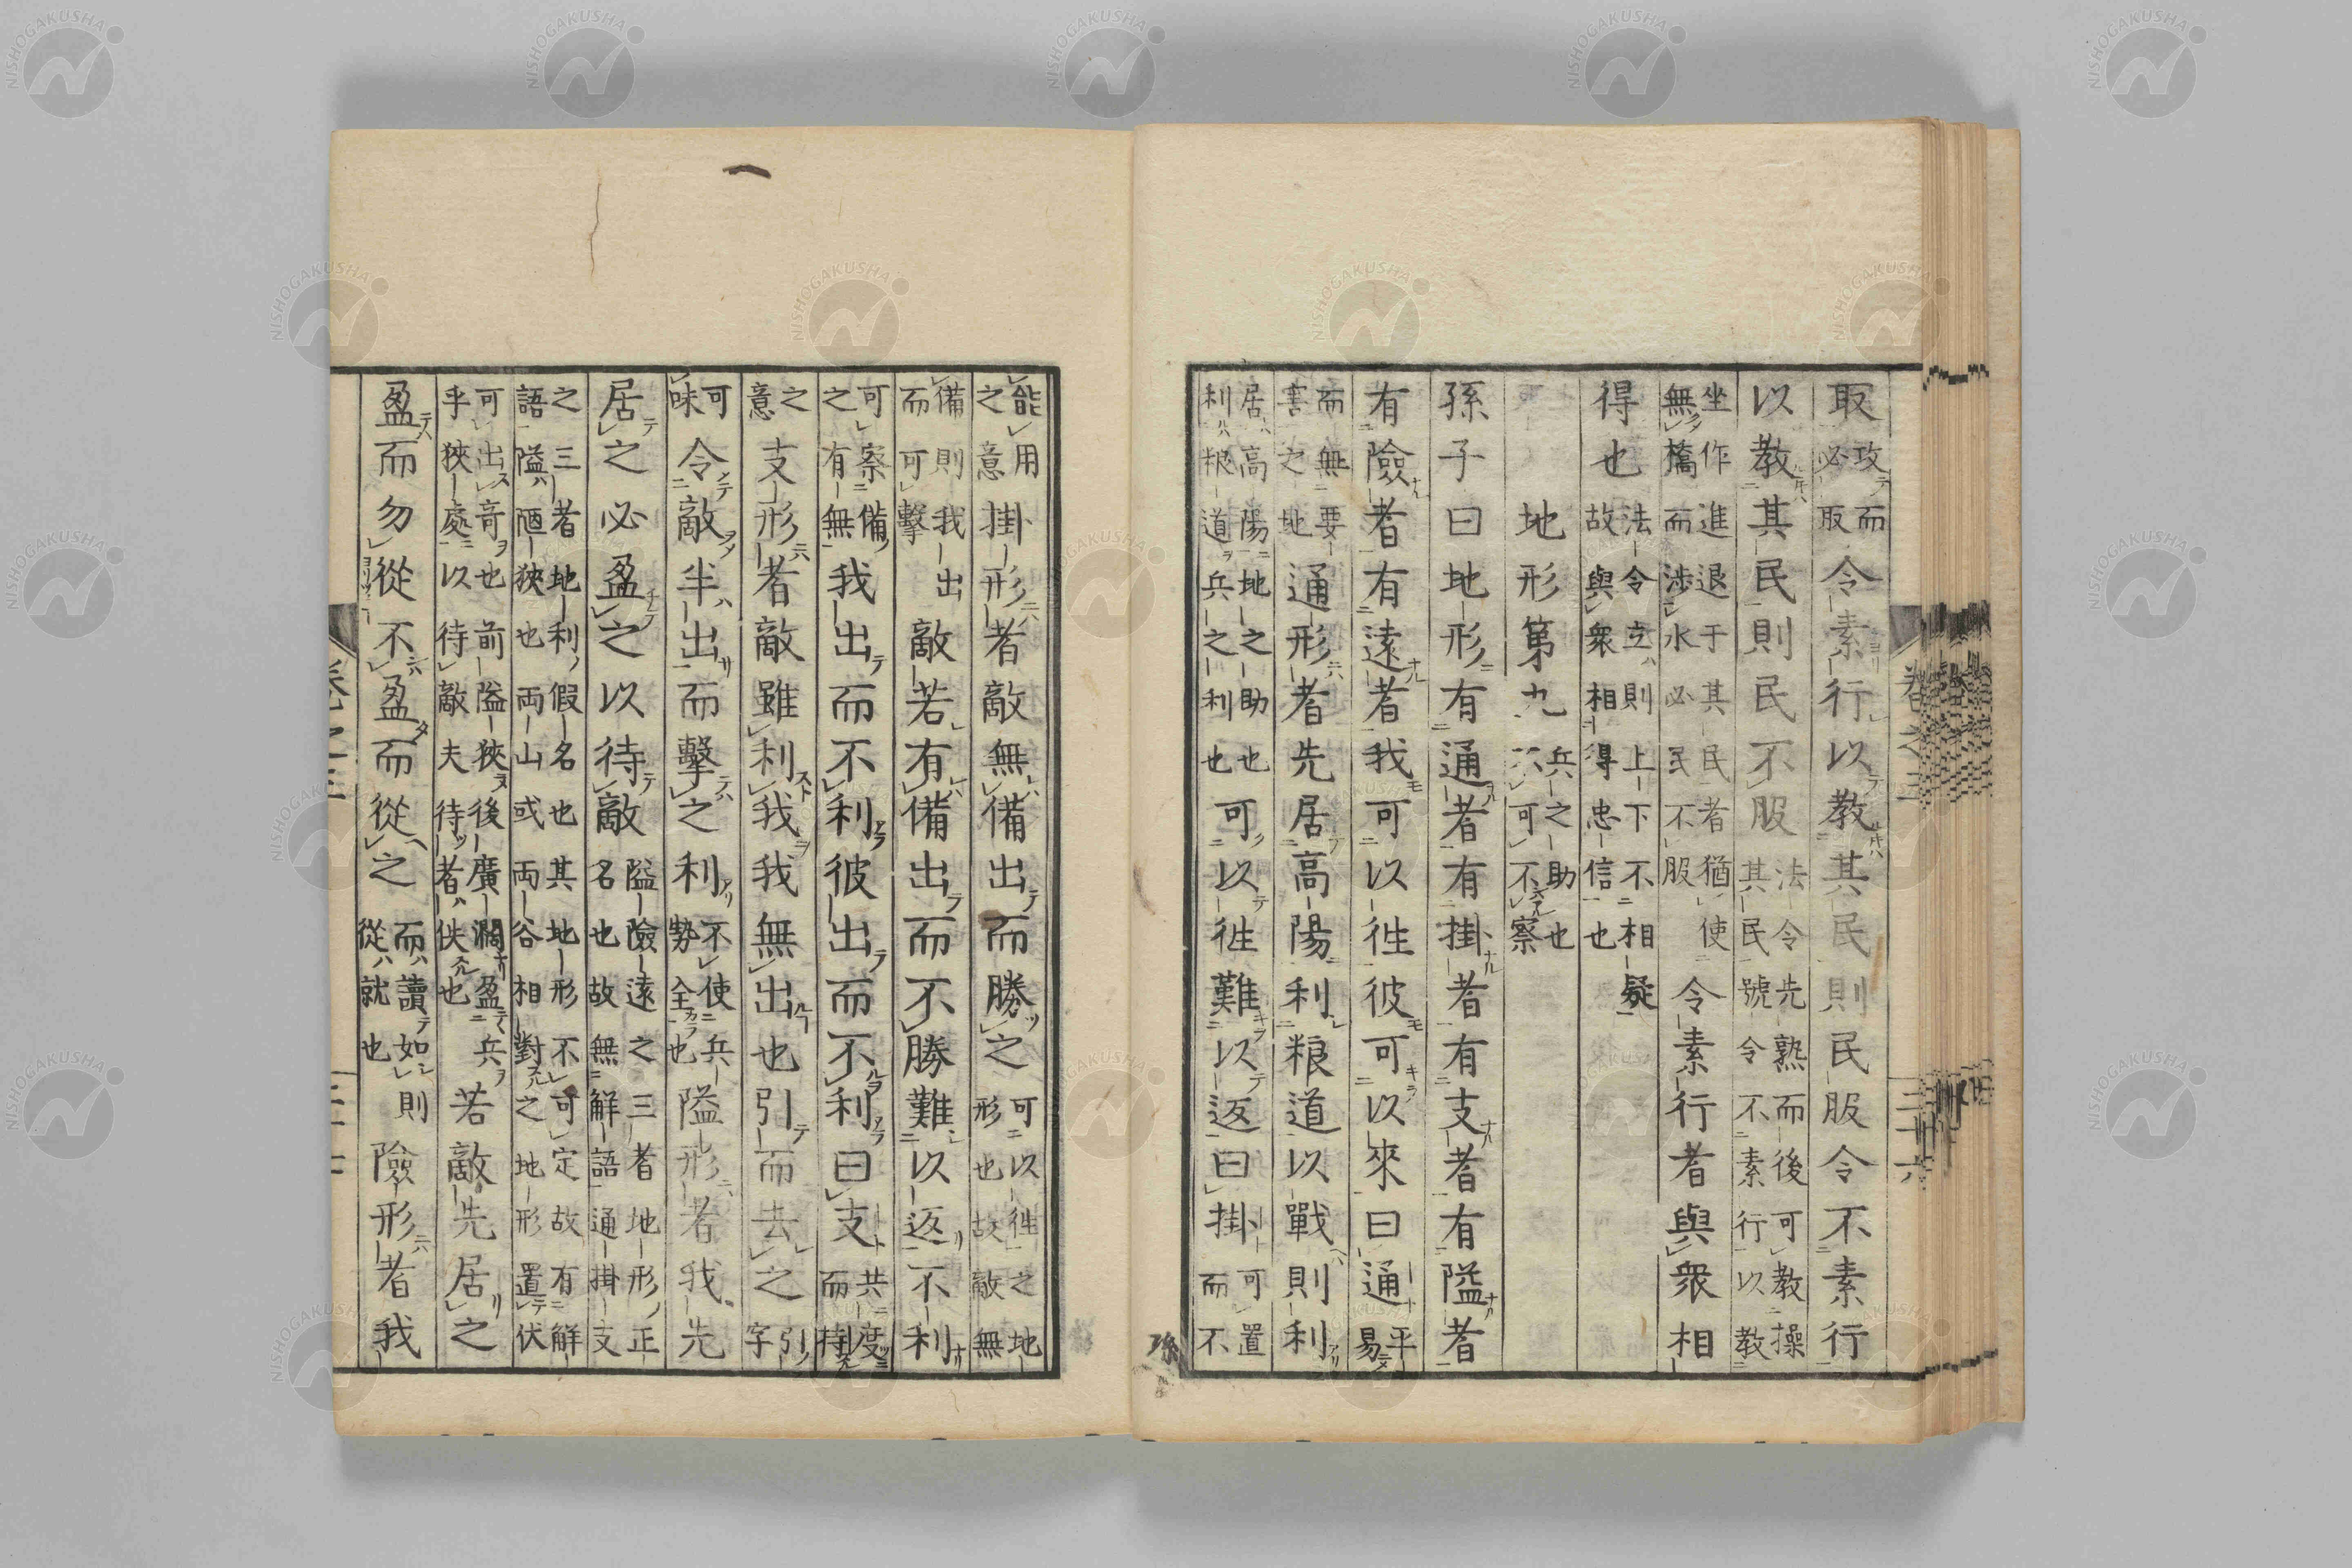 取攻而必取令素行以教其民則民服令不素行
以教其民則民不服法令先熟而後可教操其民號令不素行以教
坐作進退于其民者猶使無橋而涉水必民不服令素行者與衆相
得也法令立則上下不相疑故與衆相得忠信也
地形第九兵之助也不可不察
孫子曰地形有通者有掛者有支者有隘者
有險者有遠者我可以往彼可以來曰通平易
而無要害之地通形者先居高陽利粮道以戰則利
居高陽地之助也利粮道兵之利也可以往難以返曰掛可置而不
能用之意掛形者敵無備出而勝之可以往之地形也故敵無
備則我出而可擊敵若有備出而不勝難以返不利
可察備之有無我出而不利彼出而不利曰支共度而持
之意支形者敵雖利我我無出也引而去之引字
可味令敵半出而擊之利不使兵勢全也隘形者我先
居之必盈之以待敵隘險遠之三者地形正名也故無解語通掛支
之三者地利假名也其地形不可定故有解語隘陋狹也両山或両谷相對之地形置伏
可出奇也前隘狹後廣濶盈兵乎狹處以待敵夫待者佚也若敵先居之
盈而勿從不盈而從之而讀如則從就也險形者我
卷之三
三十六
NISHOGAKUSHA